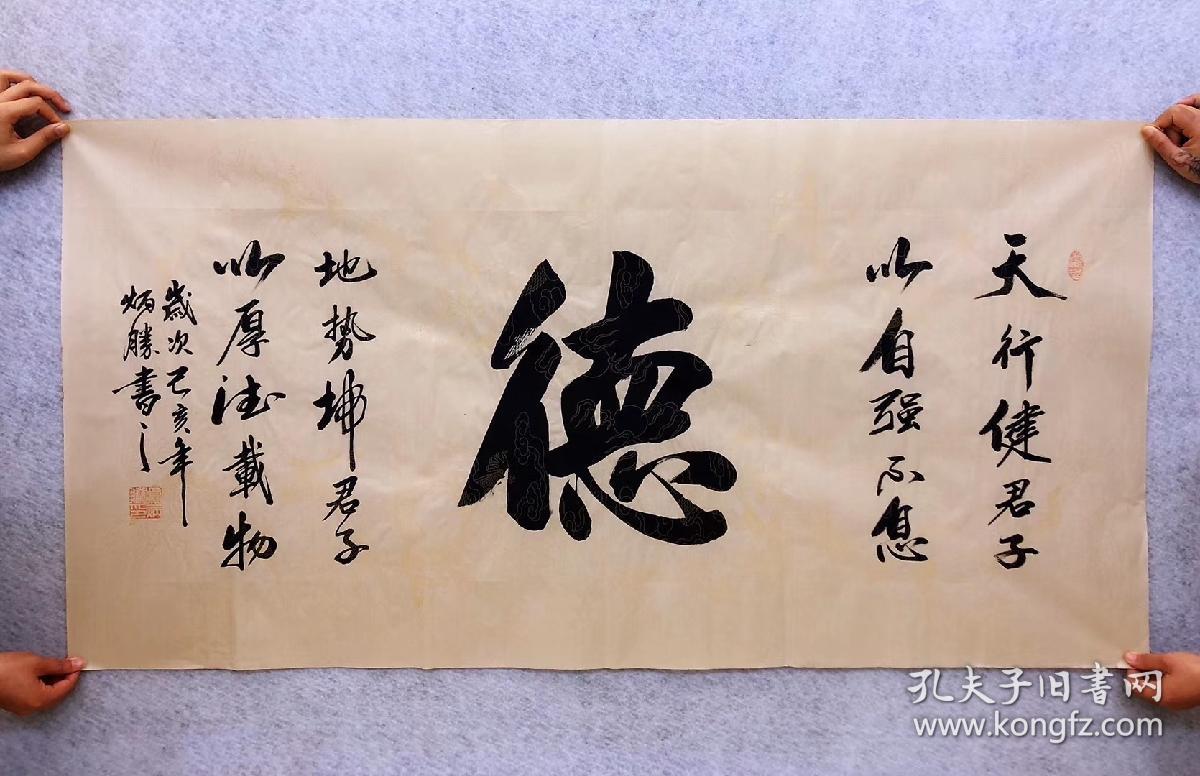 天行健君子
以自强不息
德
地势坤君子
以厚德載物
歲次己亥年
炳勝書
孔夫子旧書网
www.kongfz.com